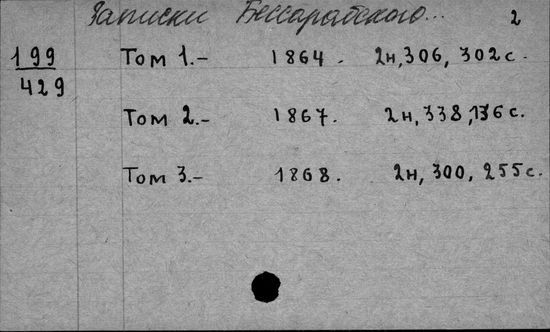 Записки Бессарабского... 2
199 Том 1.- 1864. 2н, 306, 302 с.
429
Том 2.- 1867. 2н, 338, 136 с.
Том 3.- 1868. 2н, 300, 255 с.